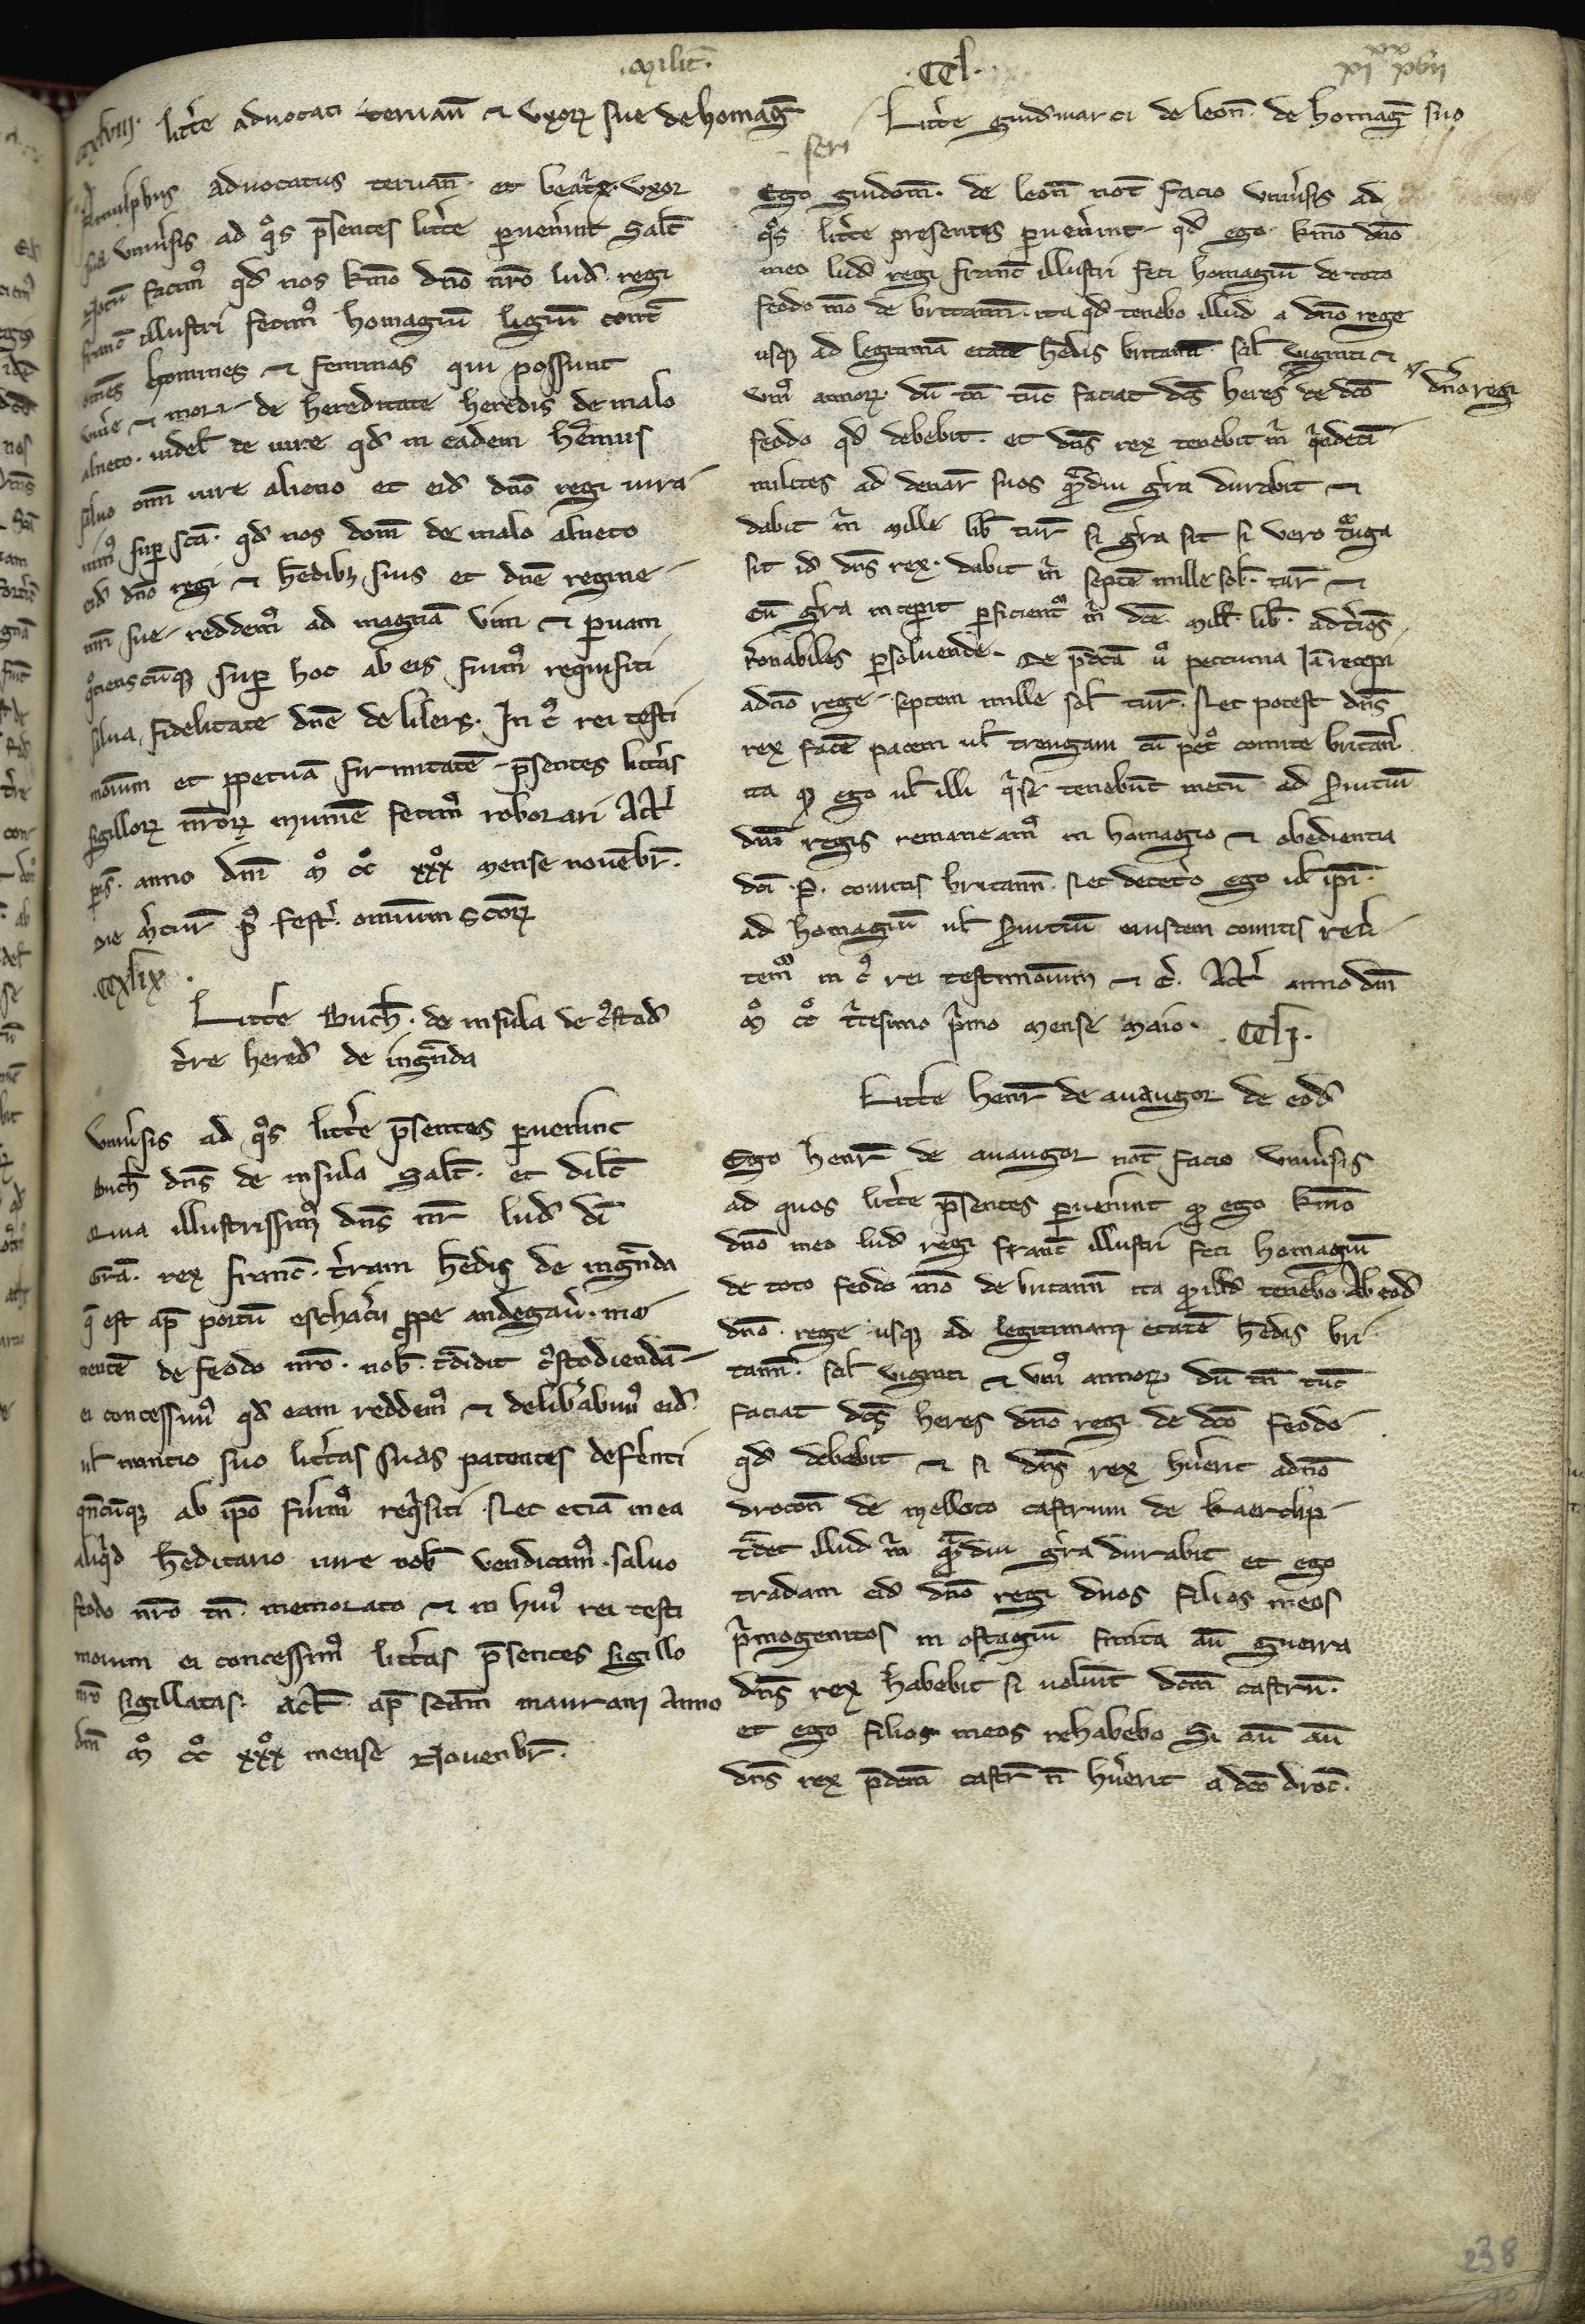 .Milit̄.
.CCl.
xi xvii
ccxlviii. litt̾e advocati teruan̄ ⁊ vxoꝝ sue de homaḡ
Arnulphus advocatus teruan̄. et beat̾x. vxor
sua vniu̾sis ad qͦs p̄sentes litt̾e peruen̾int Salt̄
Notū facimꝰ qd̄ nos kmō dn̄o nr̄o lud̄. regi
franc̄ illustri fecimꝰ homagiū ligiū cont̄
om̄es homines ⁊ feminas qui possunt
viu̾e ⁊ mori de hereditate heredis de malo
alneto. videl̄ de iure qd̄ in eadem hēmus
saluo om̄i iure alieno et eid̄ dn̄o regi iura
uimꝰ sup̄ sc̄a. qd̄ nos dom̄ de malo alneto
eid̄ dn̄o regi ⁊ hēdibꝫ suis et dn̄e regine
mr̄i sue reddemꝰ ad magnā vim ⁊ paruam
qͦcienscūqꝫ sup̄ hoc ab eis fuimꝰ requisiti
salua fidelitate dn̄e de lilers. In cꝰ rei testi
monium et ꝑpetuā firmitatē p̄sentes litt̾as
sigilloꝝ nr̄oꝝ munimē fecimꝰ roborari Act̄
p̄s. anno dn̄i mͦ ccͦ xxxͦ mense nouēbr̄.
die m̾cur̄ pͦ festū omnium sc̄oꝝ
.CCxlix.
Litt̾e Buch̄. de insula de c̾stod̄
t̾re hered̄ de ingn̄da
vniu̾sis ad qͦs litt̾e p̄sentes peruen̾int
Buch̄ dn̄s de insula Salt̄. et dilc̄t
Quia illustrissimꝰ dn̄s nr̄ lud̄ di
Gr̄a. rex franc̄. t̾ram hēdis de ingn̄da
q̄ est ap̄ portū eschac̾ii ꝓpe andegau̾. mo
uentē de feodo nr̄o. nob̄. t̄didit c̾stodiendā
ei concessimꝰ qd̄ eam reddemꝰ ⁊ delib̾abimꝰ eid̄.
ul̄ nuncio suo litt̾as suas patentes def̾enti
qn̄cūqꝫ ab ip̄o fu̾imꝰ req̾siti Nec etiā in ea
aliqͥd hēditario iure nob̄ vendicamꝰ. saluo
feodo nr̄o tn̄. memorato ⁊ in huiꝰ rei testi
monium ei concessimꝰ litt̾as p̄sentes sigillo
nr̄o sigillatas. Act̄ ap̄ sc̄um mauram̄ Anno
dn̄i mͦ ccͦ xxxͦ mense Nouenbr̄.
Litt̾e guidmarci de leon̄. de homaḡ suo
Ego guidom̄. de leon̄ not̄ facio vniu̾sis ad
qͦs litt̾e presentes peruen̾int qd̄ ego kmō dn̄o
meo lud̄ regi franc̄ illustri feci homagiū de toto
feodo mō de brittann̄. ita qd̄ tenebo illud a dn̄o rege
usqꝫ ad legitimā etatē hēdis britann̄. scil̄ viginti ⁊
vniꝰ annoꝝ. dū tn̄ tūc faciat dc̄s heres de dc̄o
dn̄o regi
feodo qd̄ debebit. et dn̄s rex tenebit m̄ qͥndeci
milites ad denar̄ suos qͣmdiu g̾ra durabit ⁊
dabit m̄ mille lib̄ tur̄ si g̾ra sit si vero treuga
sit id̄ dn̄s rex. dabit m̄ septē mille sol̄. tur̄ ⁊
cū g̾ra inceperit perficientꝰ m̄ dc̄e mill̄. lib̄. ad t̾ios
r̄onabiles persoluende. De p̄dc̄ā uͦ peccunia iā recepi
a dn̄o rege septem mille sol̄ tur̄. Nec potest dn̄s
rex face pacem ul̄ treugam cū petͦ comite britan̄
ita ꝙ ego ul̄ illi qͥ se tenebūt mecū ad s̾uitiū
dn̄i regis remaneamꝰ in homagio ⁊ obedientia
dc̄i .P. comitis britann̄. Nec decet̾o ego ul̄ ip̄i
ad homagiū ul̄ s̾uitiū eiusdem comitis redi
temꝰ in cꝰ rei testimonium ⁊ c̾. Act̄ anno dn̄i
mͦ ccͦ t̾cesimo p̾mo mense Maio. .CClj.
Litt̾e henr̄ de auaugor de eod̄
Ego henr̄ de auaugor not̄ facio vniu̾sis
ad quos litt̾e p̄sentes peruen̾int ꝙ ego kmō
dn̄o meo lud̄ regi franc̄ illustri feci homagiū
de toto feodo mō de britann̄ ita ꝙ illud̄ tenebo Ab eod̄
dn̄o. rege usqꝫ ad legitimam etatē hēdis bri
tann̄. scil̄ viginti ⁊ vniꝰ annoꝝ dū tn̄ tūc
faciat dc̄s heres dn̄o regi de dc̄o feodo
qd̄ debebit ⁊ si dn̄s rex hu̾erit a dn̄o
drocon̄ de melloto castrum de kaerchp
t̄det illud m̄ qͣmdiu g̾ra durabit et ego
tradam eid̄ dn̄o regi duos filios meos
p̾mogenitos in ostagiū finita aū guerra
dn̄s rex habebit si volu̾it dc̄m castrū.
et ego filios meos rehabebo Si aū aū
dn̄s rex p̄dc̄m castr̄ n̄ hu̾erit a dc̄o droc̄.
238